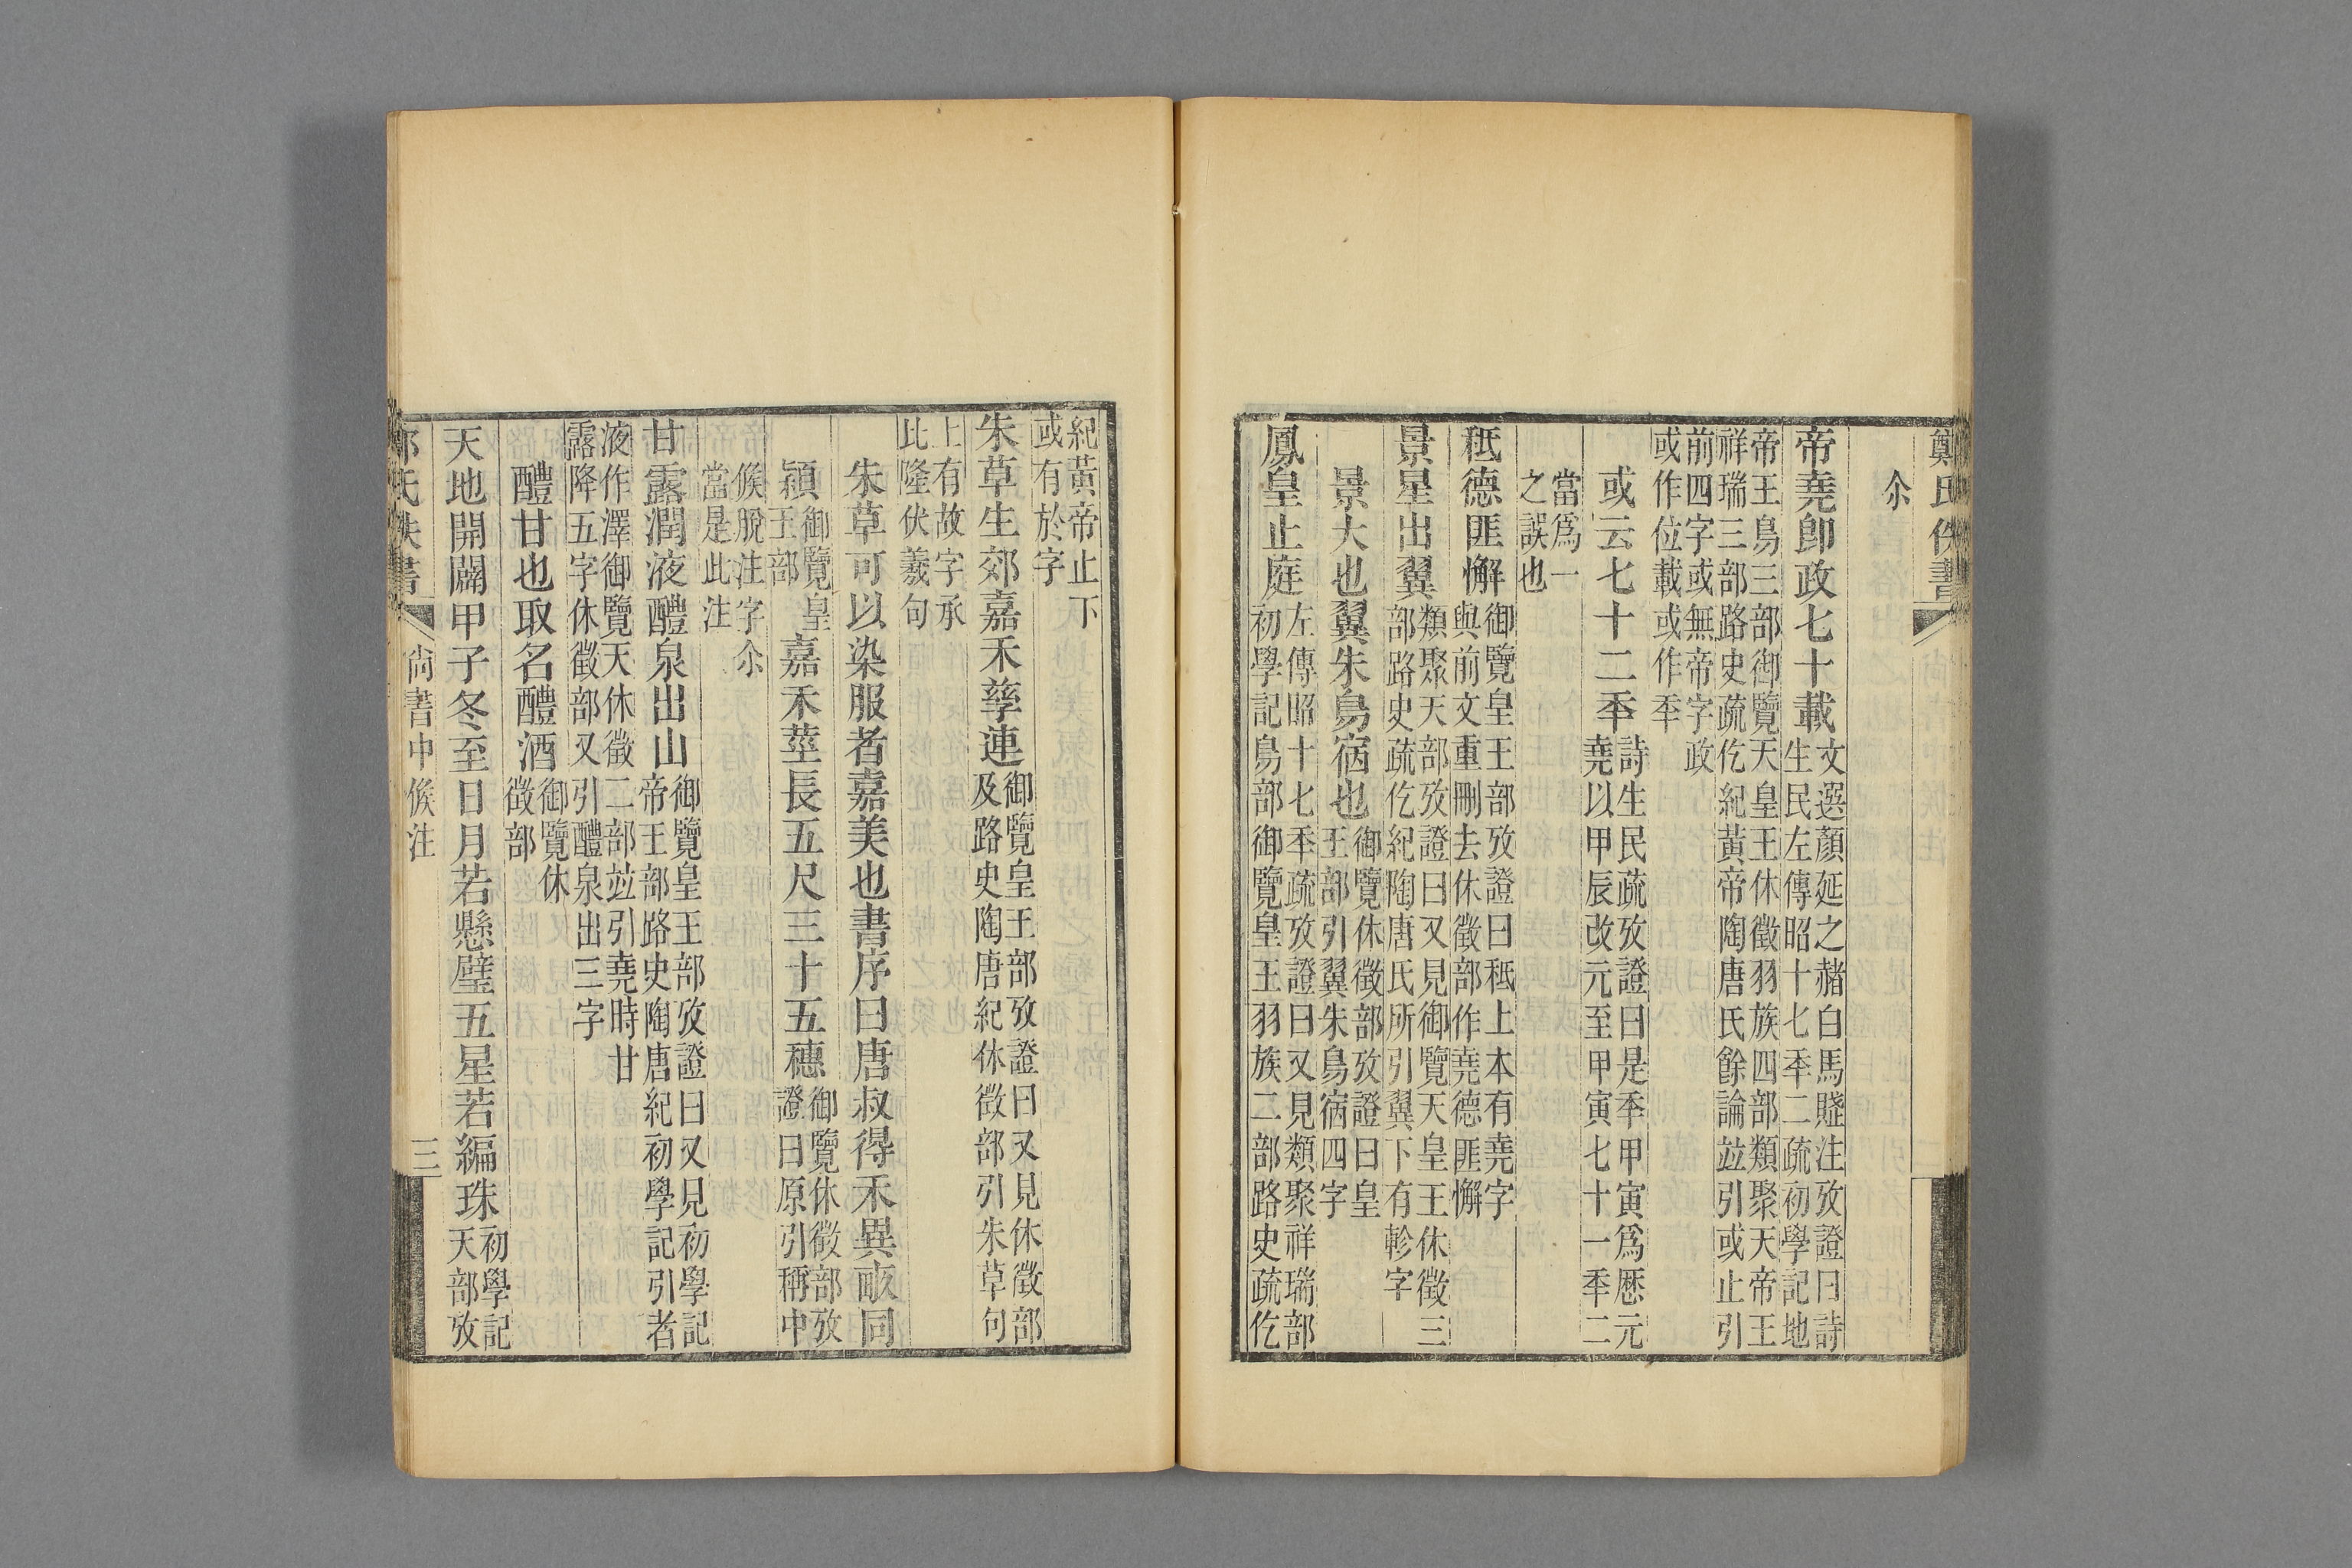 鄭氏佚書
尒
帝堯卽政七十載文選顏延之赭白馬賦注攷證曰詩
生民左傳昭十七秊二疏初學記地
帝王鳥三部御覽天皇王休徵羽族四部類聚天帝王
祥瑞三部路史疏仡紀黃帝陶唐氏餘論竝引或止引
前四字或無帝字政
或作位載或作秊
或云七十二秊詩生民疏攷證曰是秊甲寅爲厯元
堯以甲辰改元至甲寅七十一秊二
當爲一
之誤也
秪德匪懈御覽皇王部攷證曰秪上本有堯字
與前文重刪去休徵部作堯德匪懈
景星出翼類聚天部攷證曰又見御覽天皇王休徵三
部路史疏仡紀陶唐氏所引翼下有軫字
景大也翼朱鳥宿也御覽休徵部攷證曰皇
王部引翼朱鳥宿四字
鳳皇止庭左傳昭十七秊疏攷證曰又見類聚祥瑞部
初學記鳥部御覽皇王羽族二部路史疏仡
紀黃帝止下
或有於字
朱草生郊嘉禾孳連御覽皇王部攷證曰又見休徵部
及路史陶唐紀休徵部引朱草句
上有故字承
此隆伏羲句
朱草可以染服者嘉美也書序曰唐叔得禾異畞同
穎御覽皇
王部嘉禾莖長五尺三十五穗御覽休徵部攷
證曰原引稱中
候脫注字尒
當是此注
甘露潤液醴泉出山御覽皇王部攷證曰又見初學記
帝王部路史陶唐紀初學記引者
液作澤御覽天休徵二部竝引堯時甘
露降五字休徵部又引醴泉出三字
醴甘也取名醴酒御覽休
徵部
天地開闢甲子冬至日月若懸璧五星若編珠初學記
天部攷
鄭氏佚書
尙書中候注
三